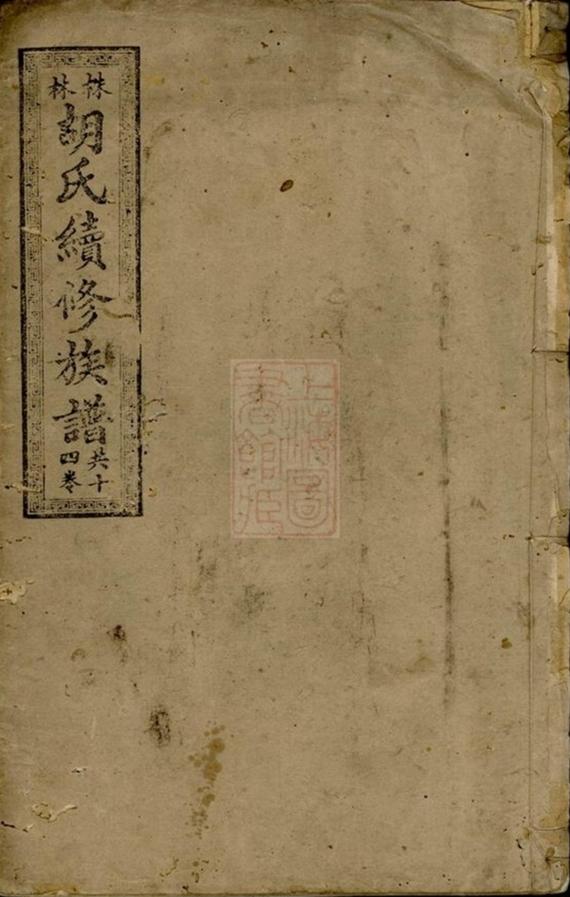 株林
胡氏續修族譜
共十
四卷
上海圖
書館藏